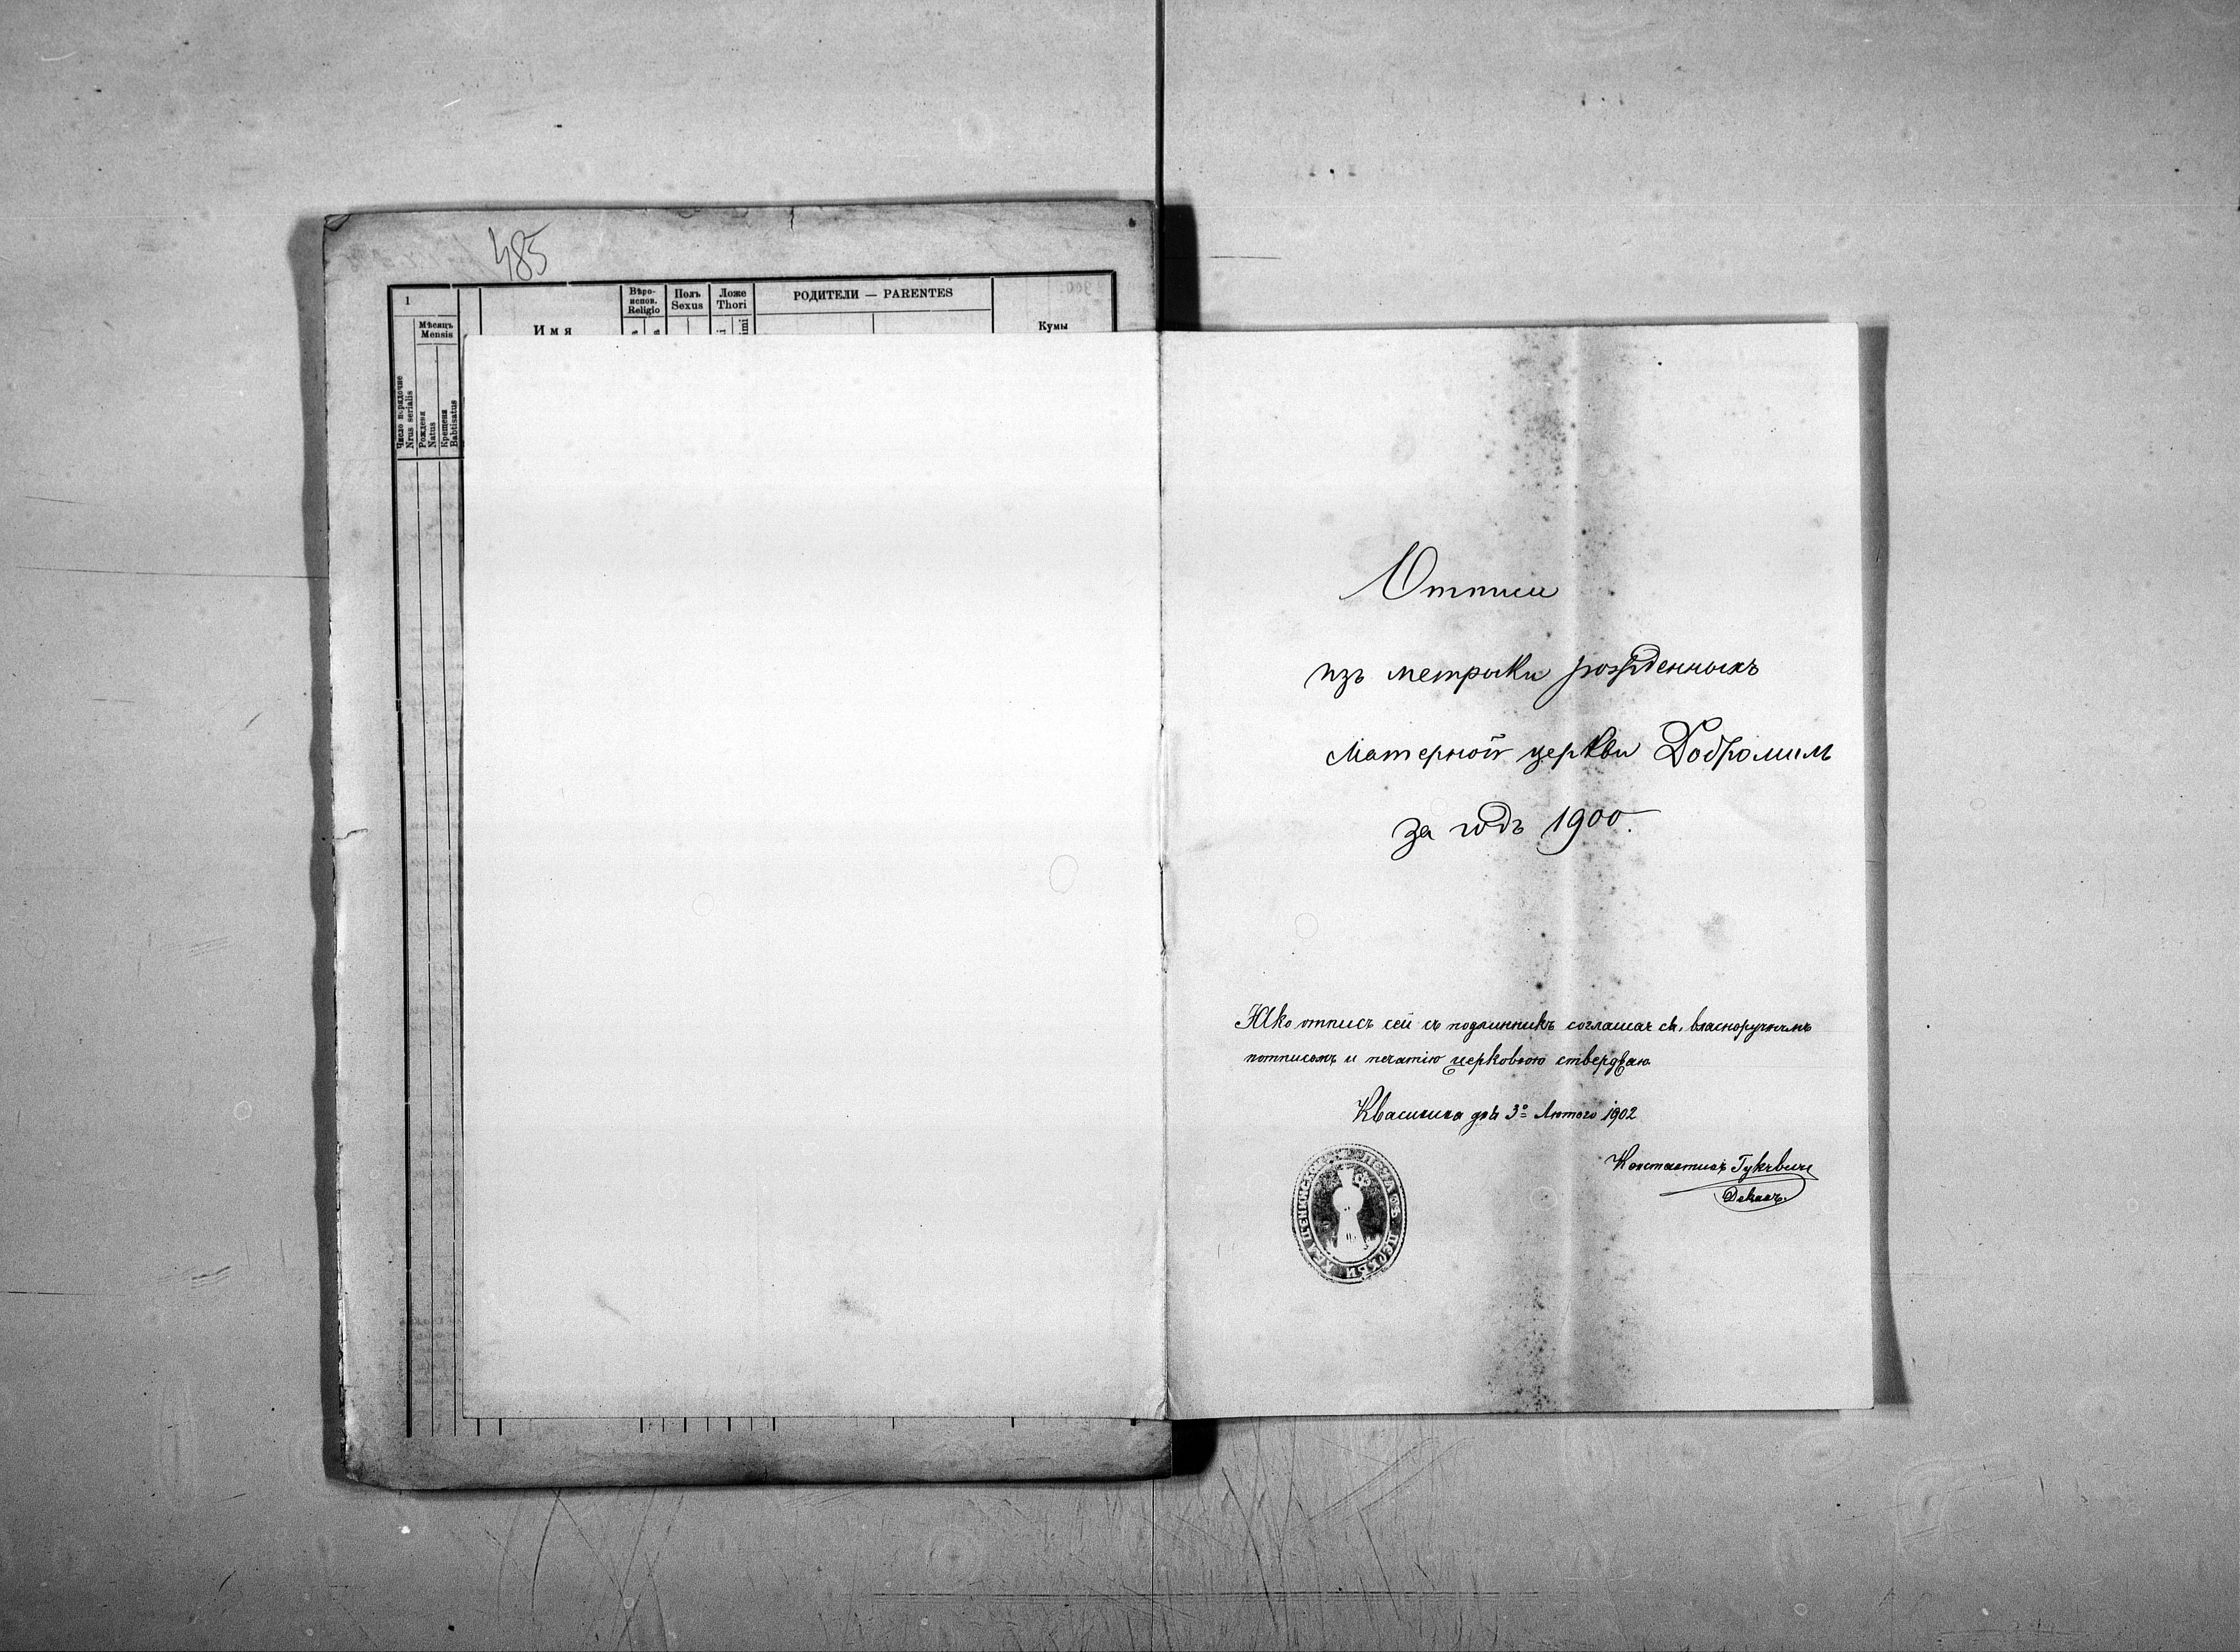 485
1
Мѣсяць
Mensis
Число порядочне
Nrus serialis
Рождения
Natus
Крещения
Babtisatus
Имя
Вѣро-
испов.
Religio
Полъ
Sexus
Ложе
Thori
РОДИТЕЛИ — PARENTES
Кумы
Отпись
изъ метрыки рожденныхъ
Матерной церкви Добромиль
за годъ 1900.
Яко отпись сей съ подлинникъ соглашає ся, власноручнымъ
потписомъ и печатію церковною ствердѣаю
Квасинина дня 3º Лютого 1902
Константинъ
Деканъ.